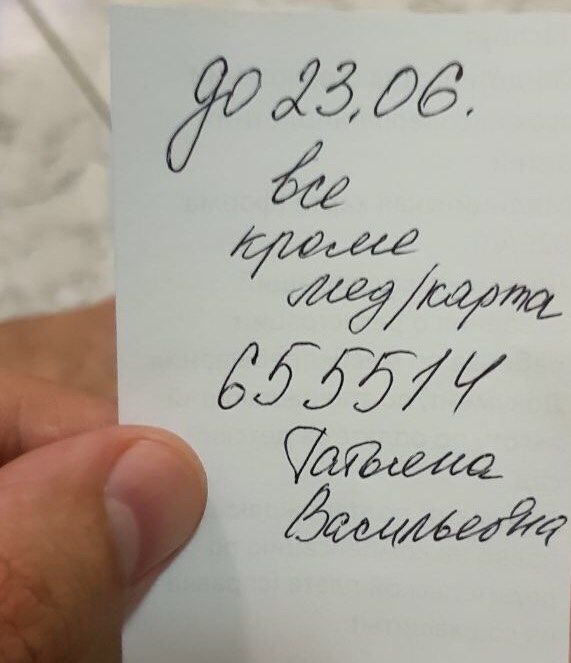 до 23.06.
все
кроме
мед/карта
655514
Татьяна
Васильевна